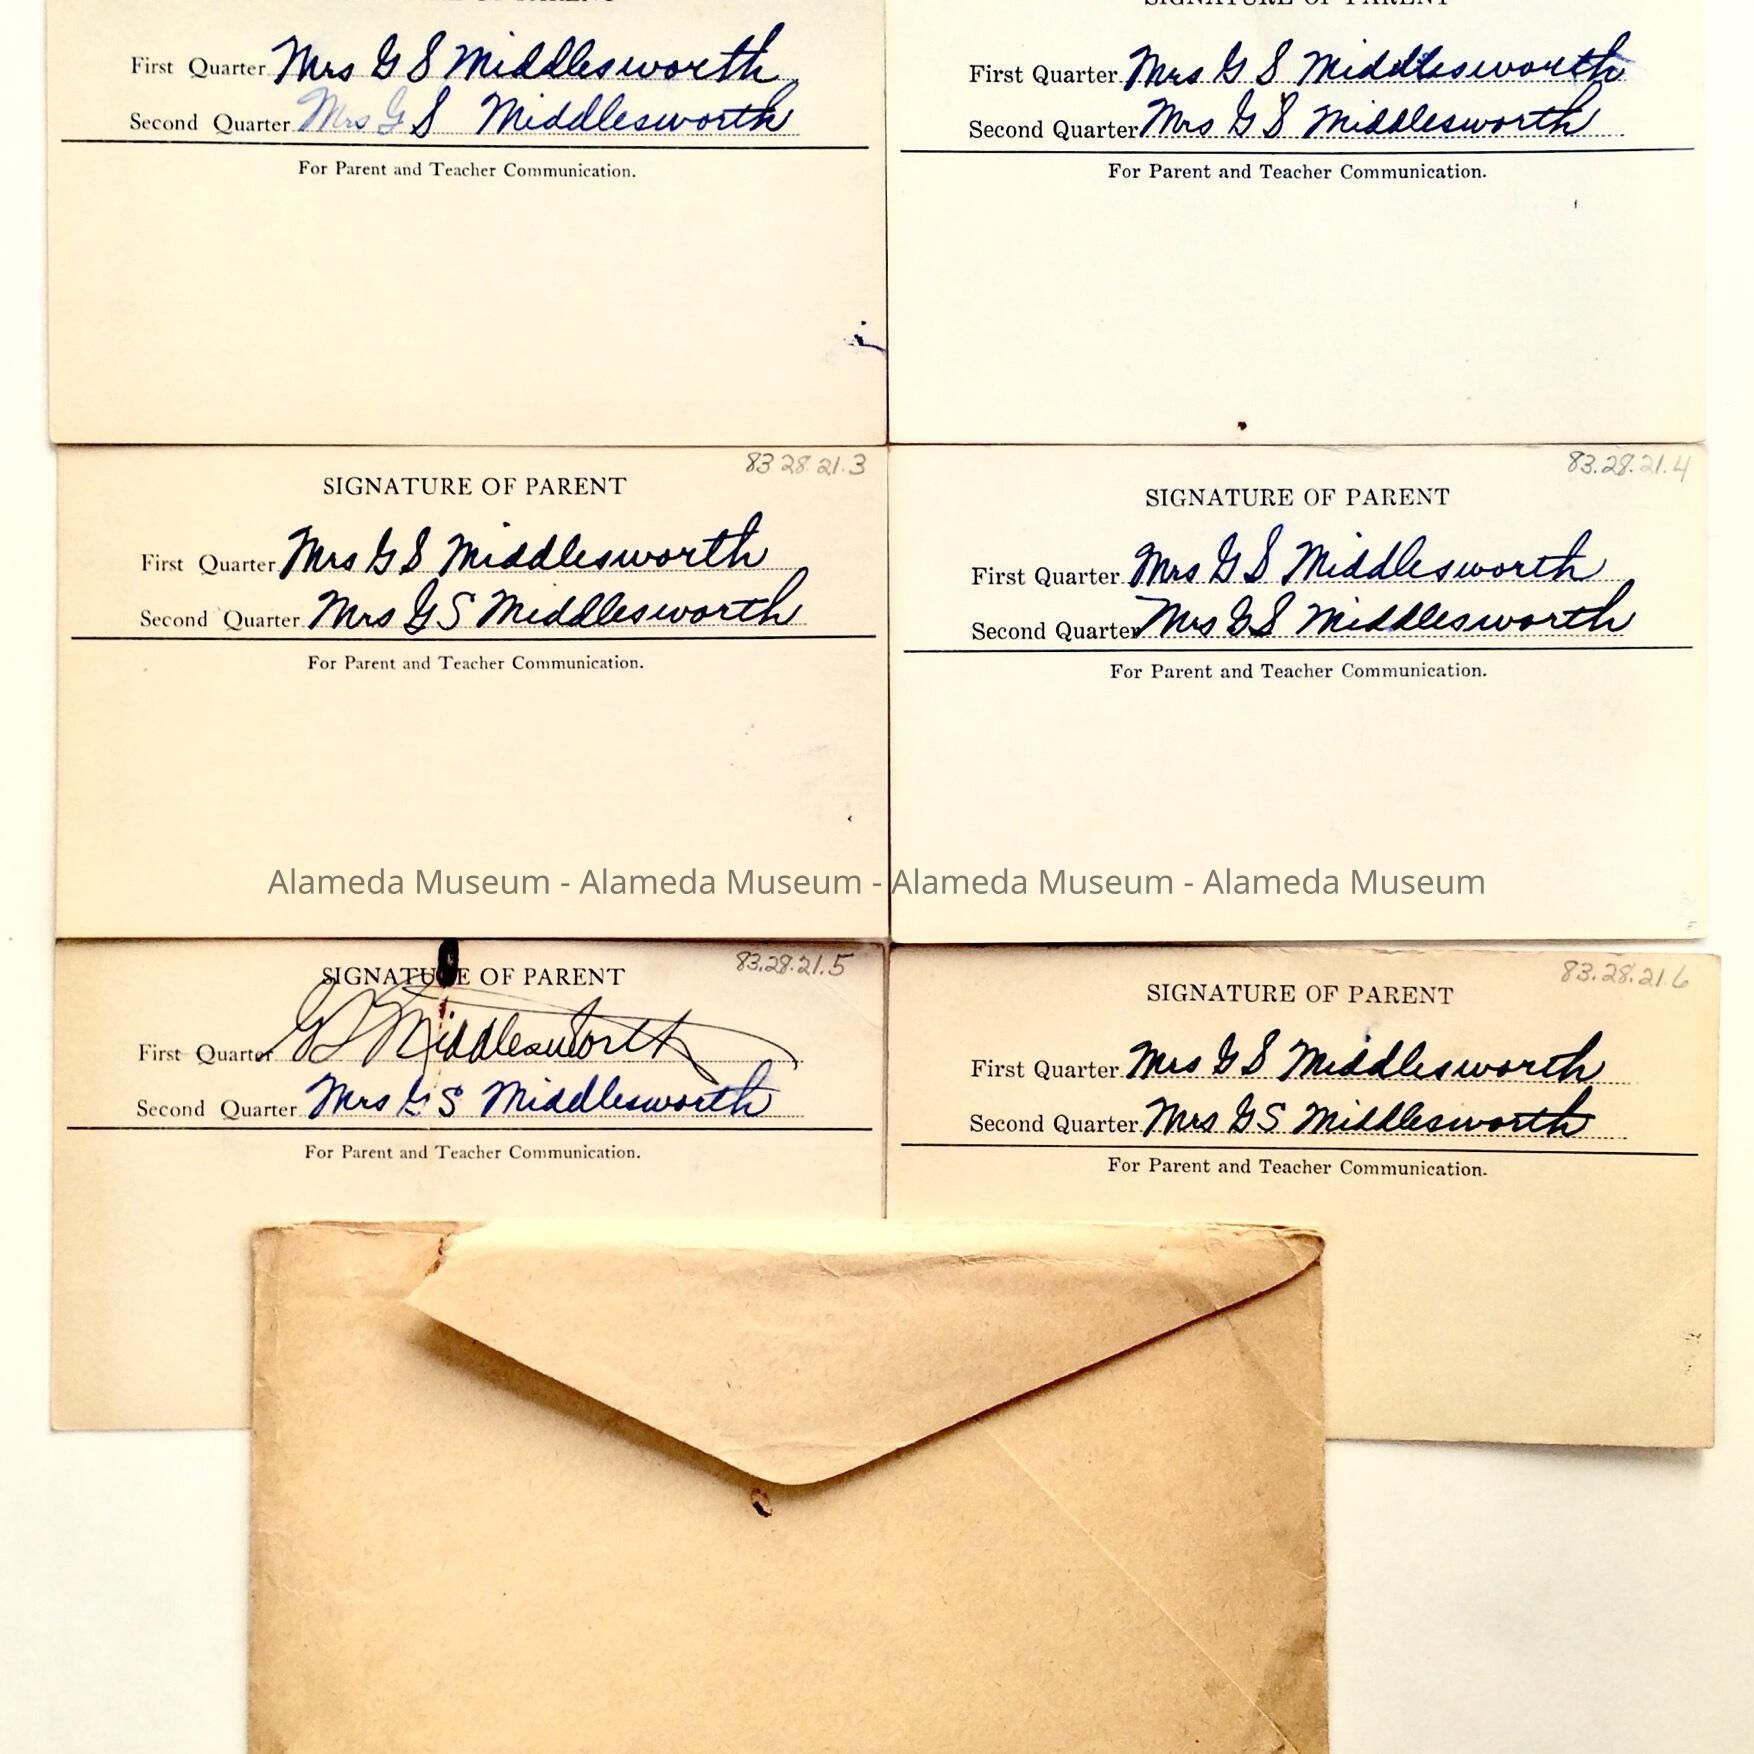 SIGNATURE OF PARENT
First Quarter Mrs G S Middlesworth
Second Quarter Mrs G S Middlesworth
For Parent and Teacher Communication.
SIGNATURE OF PARENT
First Quarter Mrs G S Middlesworth
Second Quarter Mrs G S Middlesworth
For Parent and Teacher Communication.
83.28.21.3
SIGNATURE OF PARENT
First Quarter Mrs G S Middlesworth
Second Quarter Mrs G S Middlesworth
For Parent and Teacher Communication.
83.28.21.4
SIGNATURE OF PARENT
First Quarter Mrs G S Middlesworth
Second Quarter Mrs G S Middlesworth
For Parent and Teacher Communication.
Alameda Museum - Alameda Museum - Alameda Museum - Alameda Museum
83.28.21.5
SIGNATURE OF PARENT
First Quarter G S Middlesworth
Second Quarter Mrs G S Middlesworth
For Parent and Teacher Communication.
83.28.21.6
SIGNATURE OF PARENT
First Quarter Mrs G S Middlesworth
Second Quarter Mrs G S Middlesworth
For Parent and Teacher Communication.